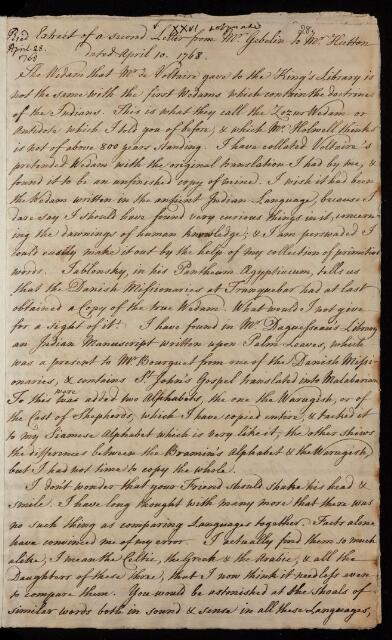 XXVI
28.
Extract of a second Letter from Mr. Gebelin to Mr. Hutton
April 28. 1768
dated April 10. 1768.
The Wedam that Mr. de Voltaire gave to the King's Library is
not the same with the first Wedams which contain the doctrine
of the Indians. This is what they call the Ezour Wedam or
Antidote which I told you of before, & which Mr. Holwell thinks
is not of above 800 years standing. I have collated Voltaire's
pretended Wedam with the original translation I had by me, &
found it to be an unfinished copy of mine. I wish it had been
the Wedam written in the ancient Indian Language, because I
dare say I should have found very curious things in it, concern-
ing the dawnings of human knowledge; & I am perswaded I
could easily make it out by the help of my collection of primitive
words. Jablonsky, in his Pantheum Ægyptiacum, tells us
that the Danish Missionaries at Tranquebar had at last
obtained a Copy of the true Wedam. What would I not give
for a sight of it! I have found in Mr. Daguesseau's Library
an Indian Manuscript written upon Palm Leaves, which
was a present to Mr. Bourguet from one of the Danish Missi-
onaries, & contains St. John's Gospel translated into Malabarian.
To this were added two Alphabets, the one the Warugish, or of
the Cast of Shepherds, which I have copied entire, & tacked it
to my Siamese Alphabet which is very like it; the other shews
the differences between the Bramin's Alphabet & the Warugish,
but I had not time to copy the whole.
I don't wonder that your Friend should shake his head &
smile. I have long thought with many more that there was
no such thing as comparing Languages together. Facts alone
have convinced me of my error. I actually find them so much
alike, I mean the Celtic, the Greek & the Arabic, & all the
Daughters of these three, that I now think it needless even
to compare them. You would be astonished at the Shoals of
similar words both in sound & sense in all these Languages,